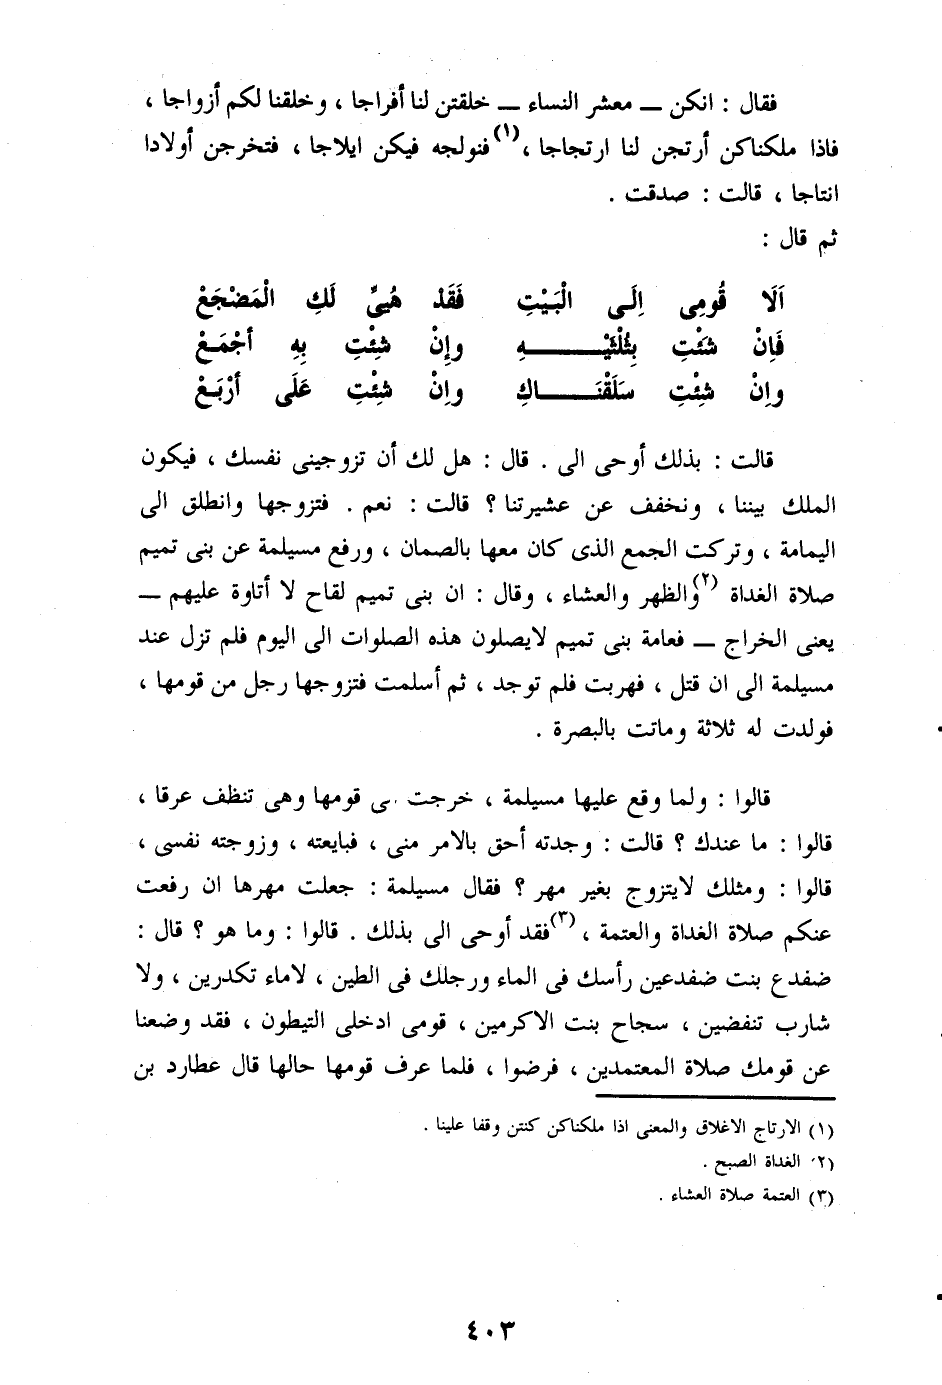 فقال : انكن ــ معشر النساء ــ خلقتن لنا أفراجا ، وخلقنا لكم أزواجا ،
فاذا ملكناكن أرتجن لنا ارتجاجا ،(١) فنولجه فيكن ايلاجا ، فتخرجن أولادا
انتاجا ، قالت : صدقت .
ثم قال :
اَلَا قُومِى اِلَى الْبَيْتِ فَقَد هُيىِّ لَكِ الْمَضْجَعْ
فَاِنْ شَئْتِ بِثُلْثَيْــــــهِ وإنْ شئْتِ بِهِ أجْمَعْ
واِنْ شِئْتِ سَلَقْنَــــــاكِ واِنْ شئْتِ عَلَى أرْبَعْ
قالت : بذلك أوحى الى . قال : هل لك أن تزوجينى نفسك ، فيكون
الملك بيننا ، ونخفف عن عشيرتنا ؟ قالت : نعم . فتزوجها وانطلق الى
اليمامة ، وتركت الجمع الذى كان معها بالصمان ، ورفع مسيلمة عن بنى تميم
صلاة الغداة (٢) والظهر والعشاء ، وقال : ان بنى تميم لقاح لا أتاوة عليهم ــ
يعنى الخراج ــ فعامة بنى تميم لايصلون هذه الصلوات الى اليوم فلم تزل عند
مسيلمة الى ان قتل ، فهربت فلم توجد ، ثم أسلمت فتزوجها رجل من قومها ،
فولدت له ثلاثة وماتت بالبصرة .
قالوا : ولما وقع عليها مسيلمة ، خرجت ى قومها وهى تنظف عرقا ،
قالوا : ما عندك ؟ قالت : وجدته أحق بالامر منى ، فبايعته ، وزوجته نفسى ،
قالوا : ومثلك لايتزوج بغير مهر ؟ فقال مسيلمة : جعلت مهرها ان رفعت
عنكم صلاة الغداة والعتمة ،(٣) فقد أوحى الى بذلك . قالوا : وما هو ؟ قال :
ضفدع بنت ضفدعين رأسك فى الماء ورجلك فى الطين ، لاماء تكدرين ، ولا
شارب تنفضين ، سجاح بنت الاكرمين ، قومى ادخلى التيطون ، فقد وضعنا
عن قومك صلاة المعتمدين ، فرضوا ، فلما عرف قومها حالها قال عطارد بن
(١) الارتاج الاغلاق والمعنى اذا ملكناكن كنتن وقفا علينا .
(٢ الغداة الصبح .
(٣) العتمة صلاة العشاء .
٤٠٣